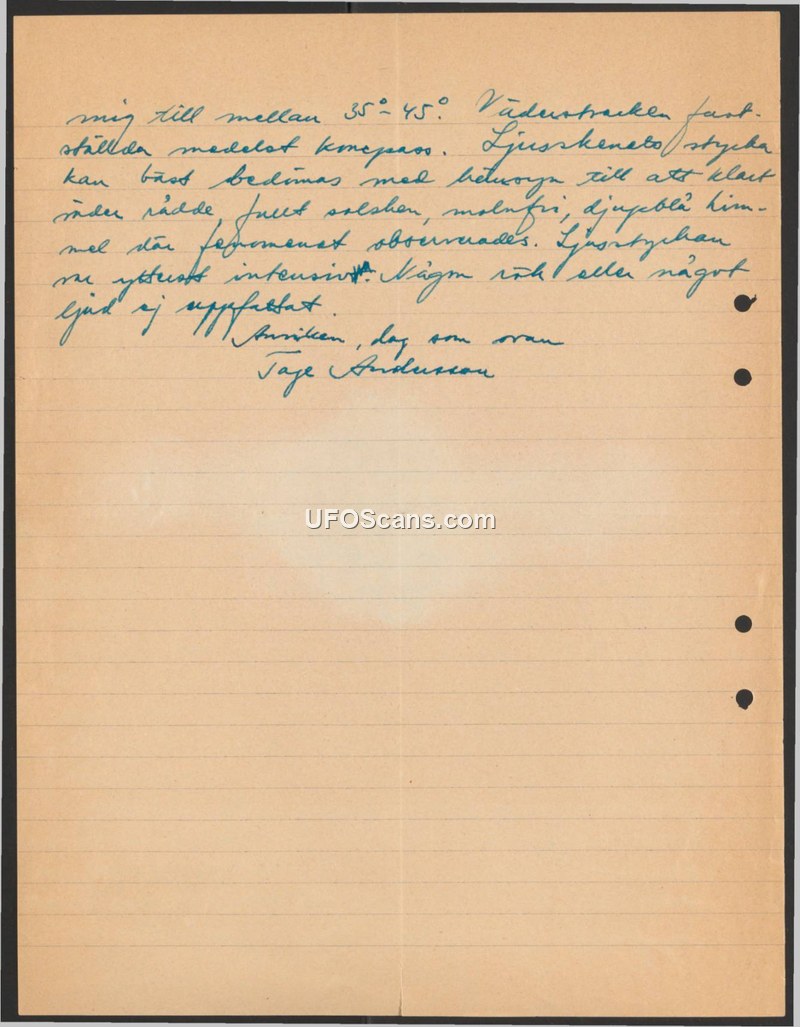 mig till mellan 35°-45°. Väderstrecken fast-
ställda medelst kompass. Ljusskenets styrka
kan bäst bedömas med hänsyn till att klart
väder rådde, fullt solsken, molnfri, djupblå him-
mel där fenomenet observerades. Ljusstyrkan
var ytterst intensiv. Någon rök eller något
ljud ej uppfattat.
dag som ovan
Tage Andersson
UFOScans.com